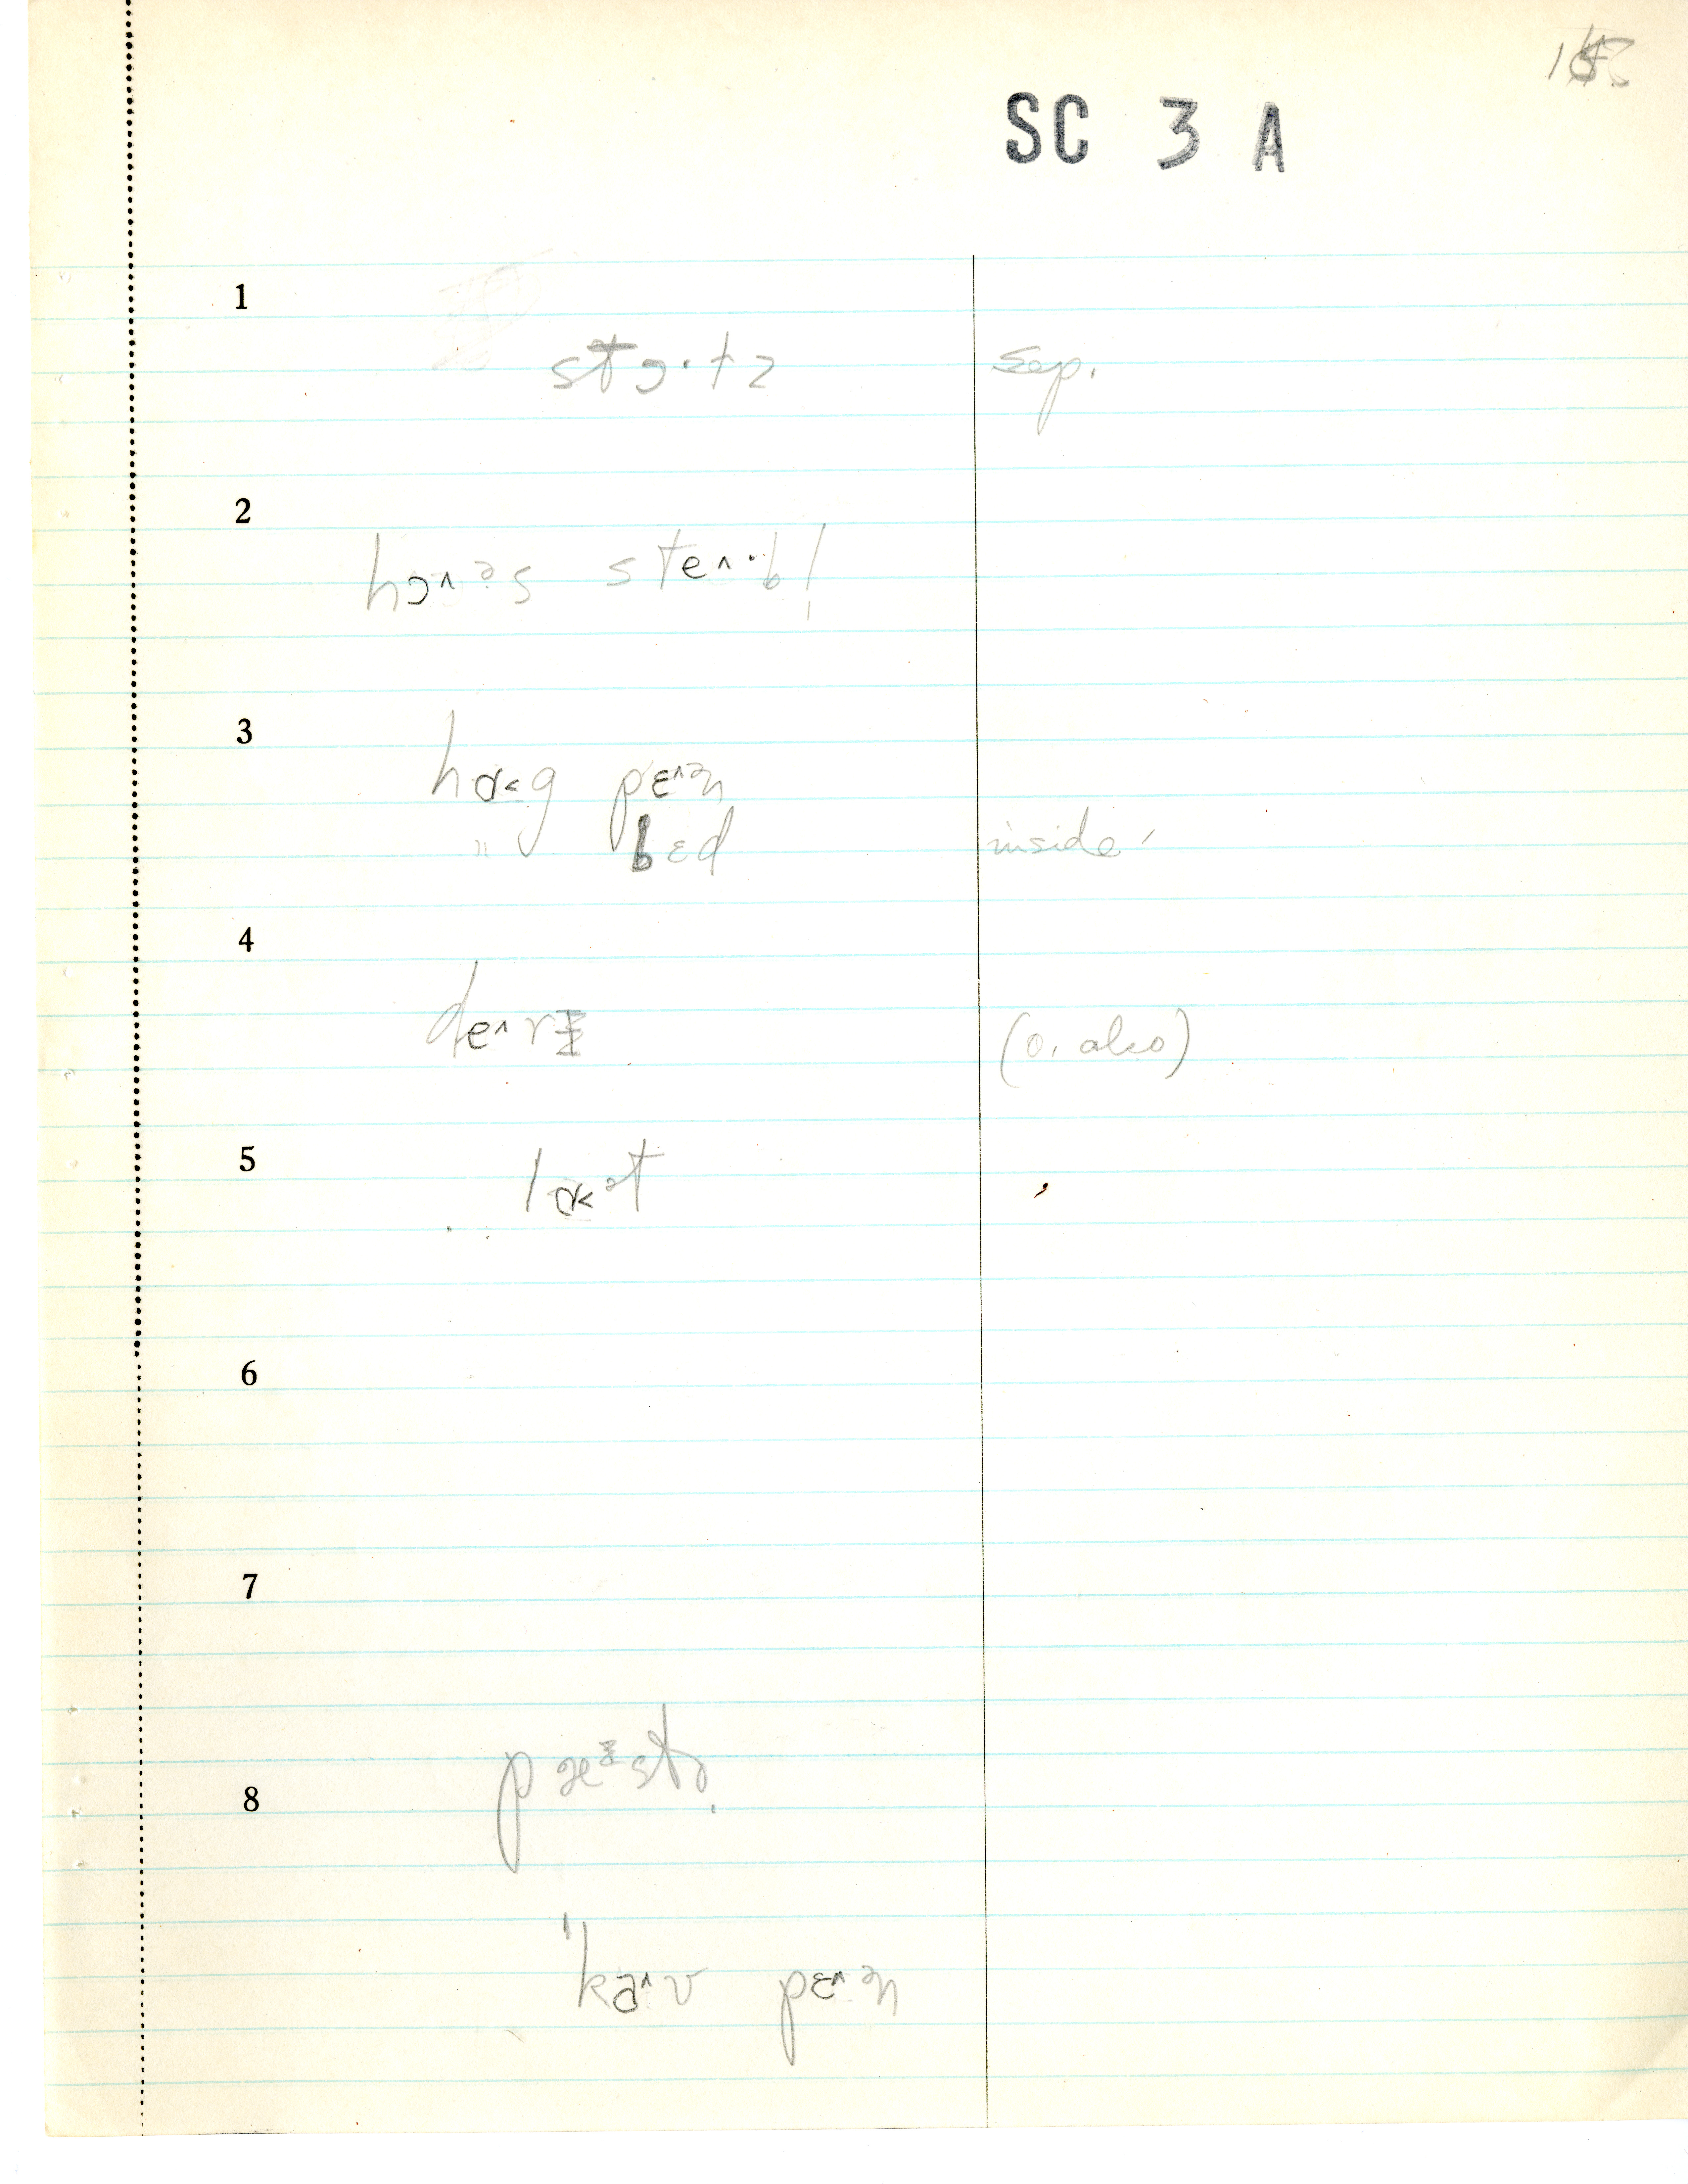 SC 3 A
1
stɔ·tz sep.
2
hɔ^ɚs ste^·b!
3
hɑ<g pɛ^ən
" bɛd inside
4
de^rɪ (o. also)
5
lɑ<ət
6
7
8
'ka^v pɛ^ən